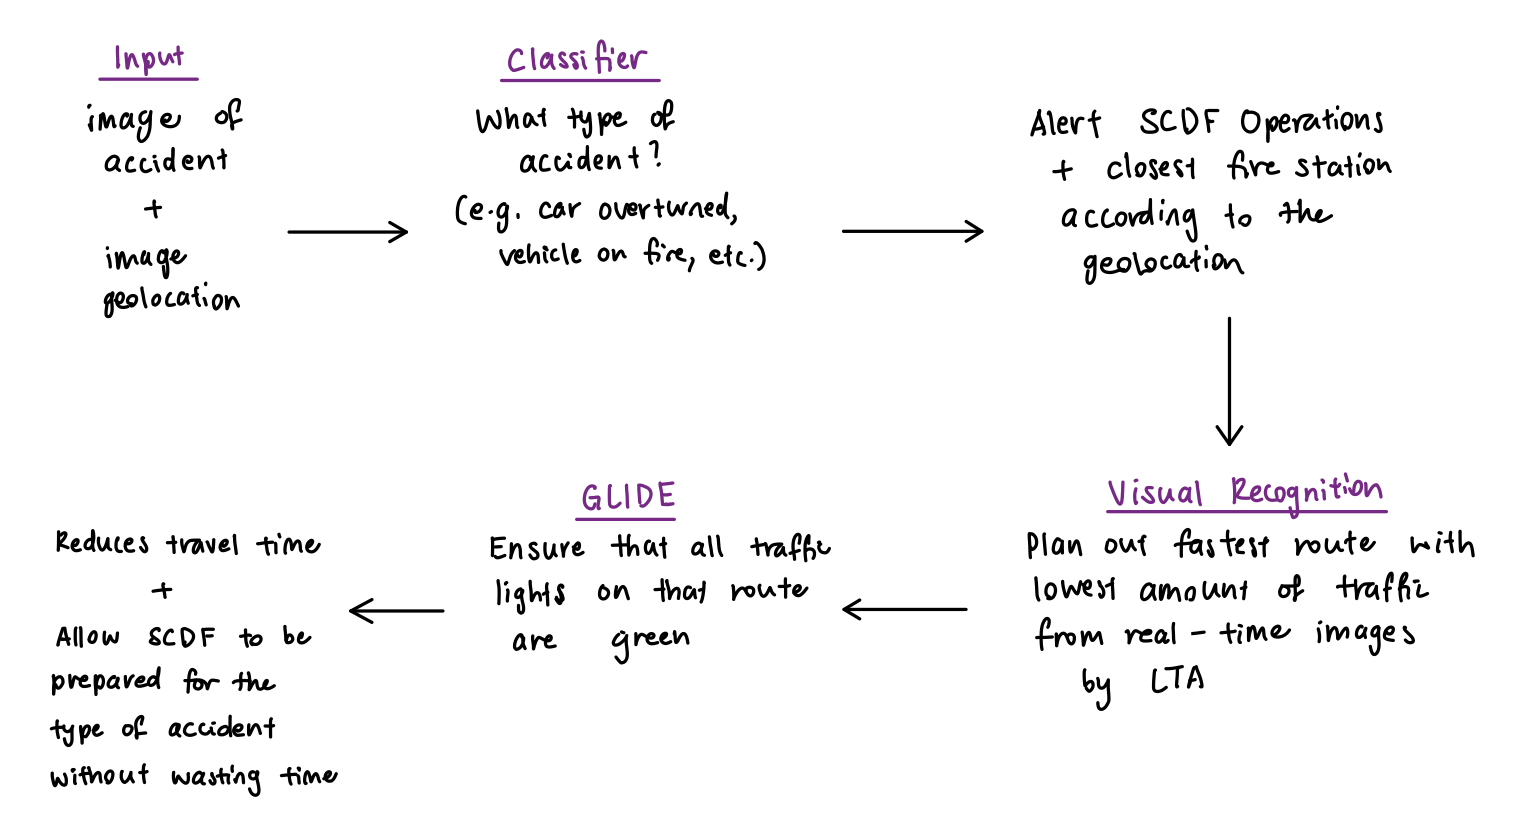 Input
image of
accident
+
image
geolocation
Classifier
What type of
accident?
(e.g. car overturned,
vehicle on fire, etc.)
Alert SCDF Operations
+ closest fire station
according to the
geolocation
Visual Recognition
Plan out fastest route with
lowest amount of traffic
from real-time images
by LTA
GLIDE
Ensure that all traffic
lights on that route
are green
Reduces travel time
+
Allow SCDF to be
prepared for the
type of accident
without wasting time